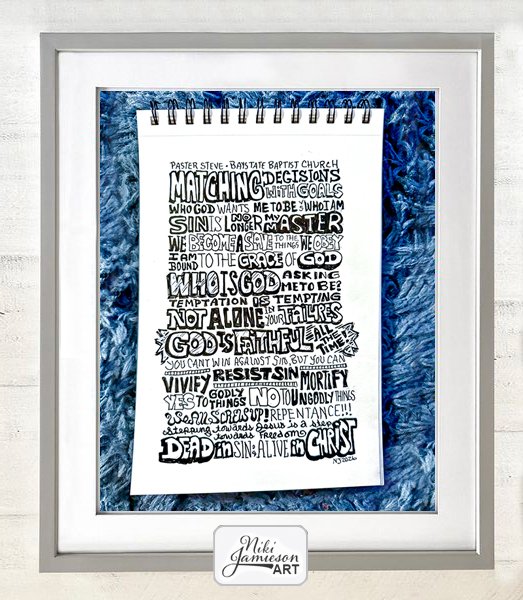 PASTER STEVE • BAYSTATE BAPTIST CHURCH
MATCHING DECISIONS
WITH GOALS
WHO GOD WANTS ME TO BE & WHO I AM
SIN IS NO LONGER MY MASTER
WE BECOME A SAVE TO THE THINGS WE OBEY
I AM BOUND TO THE GRACE OF GOD
WHO IS GOD ASKING ME TO BE?
TEMPTATION IS TEMPTING
NOT ALONE IN YOUR FAILRES
GOD IS FAITHFUL ALL THE TIME!
YOU CANT WIN AGAINST SIN, BUT YOU CAN
VIVIFY RESIST SIN MORTIFY
YES TO GODLY THINGS NO TO UNGODLY THINGS
UP! REPENTANCE!!!
stepping towards Jesus is a step
towards freedom
DEAD in SIN & ALIVE in CHRIST
NJ 2026
Niki
Jamieson
ART